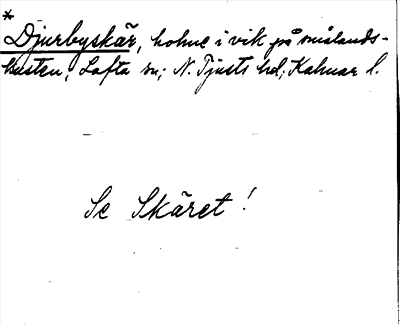 *
Djurbyskär, holme i vik på smålands-
kusten, Lofta sn; N. Tjusts hd; Kalmar l.
Se Skäret!